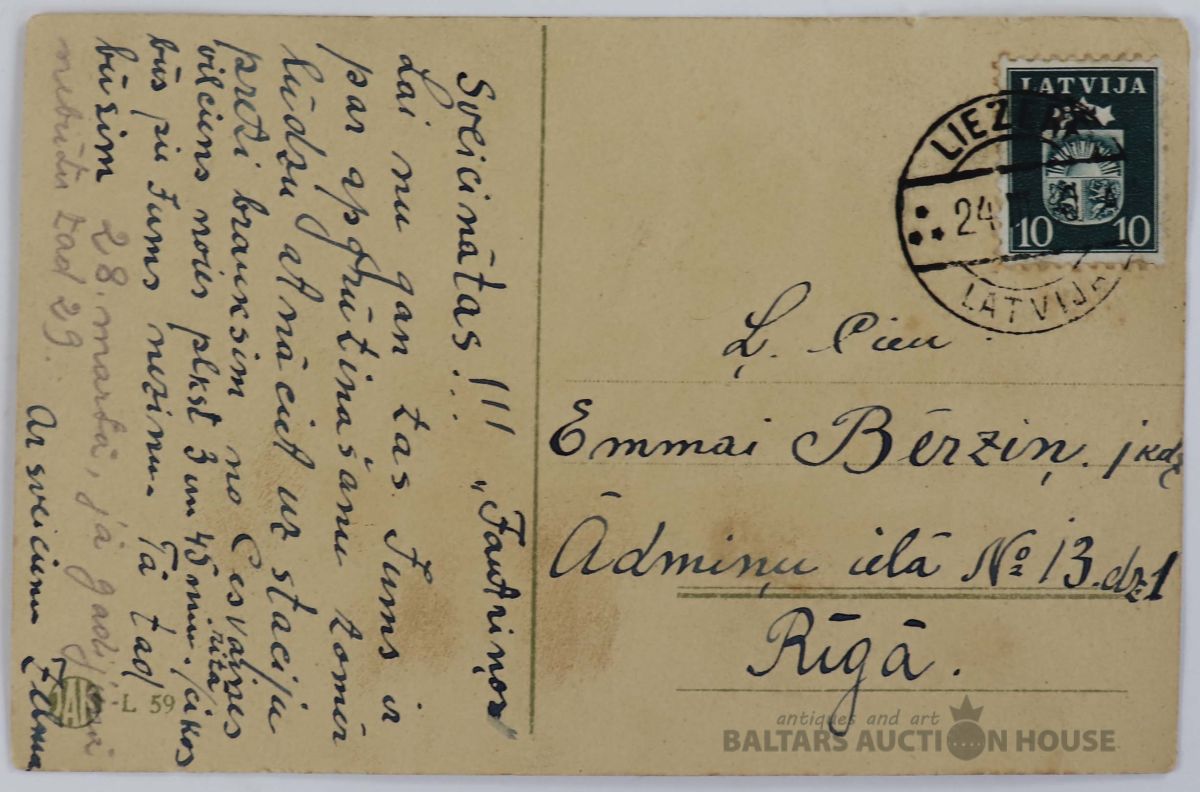 Sveicinātas!!! „Jautriņos"
Lai nu gan tas Jums ir
par apgrūtināšanu tomēr
lūdzu atnāciet uz staciju
preti brauksim no Cesvaines
vilciens noies plkst 3 un 45 min. rītā/cikos
būs pie Jums nezinu. Tā tad
būsim 28. martā, ja gadījumā
nebūtu tad 29.
Ar sveicienu Zelma
L 59
LATVIJA
10 10
LIEZĒRE
24
LATVIJA
Ļ. Cien.
Emmai Bērziņ. jkdz
Ādmiņu ielā № 13. dz 1
Rīgā.
antiques and art
BALTARS AUCTION HOUSE